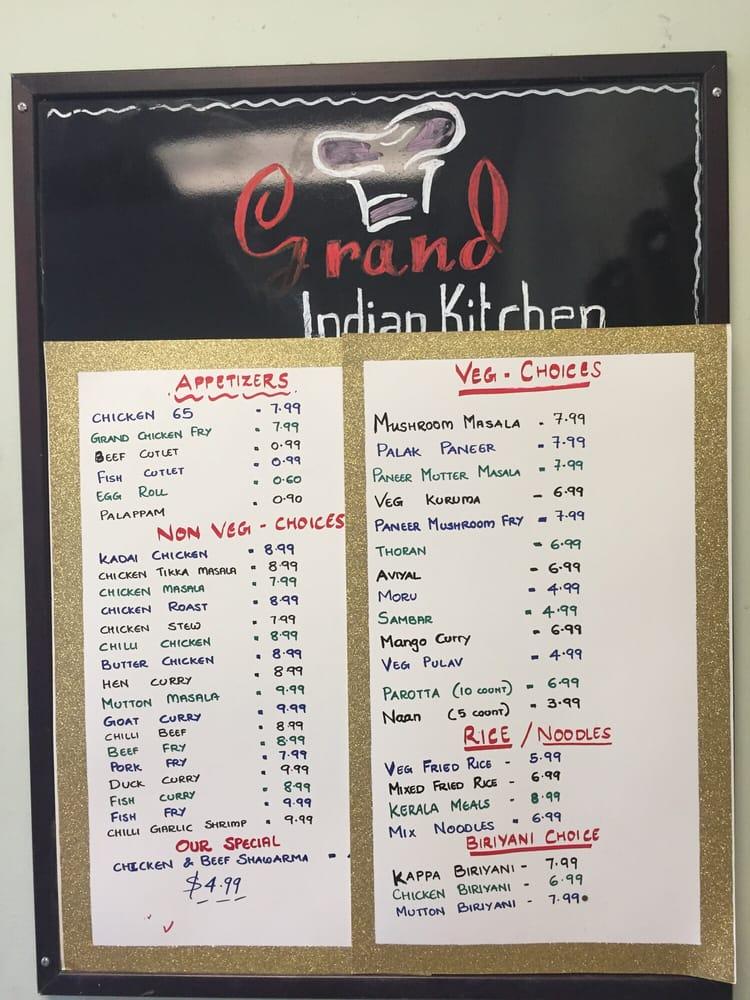 Grand
Indian Kitchen
APPETIZERS
CHICKEN 65 - 7.99
GRAND CHICKEN FRY - 7.99
BEEF CUTLET - 0.99
FISH CUTLET - 0.99
EGG ROLL - 0.60
PALAPPAM - 0.90
NON VEG - CHOICES
KADAI CHICKEN - 8.99
CHICKEN TIKKA MASALA - 8.99
CHICKEN MASALA - 7.99
CHICKEN ROAST - 8.99
CHICKEN STEW - 7.99
CHILLI CHICKEN - 8.99
BUTTER CHICKEN - 8.99
HEN CURRY - 8.99
MUTTON MASALA - 9.99
GOAT CURRY - 9.99
CHILLI BEEF - 8.99
BEEF FRY - 8.99
PORK FRY - 7.99
DUCK CURRY - 9.99
FISH CURRY - 8.99
FISH FRY - 9.99
CHILLI GARLIC SHRIMP - 9.99
OUR SPECIAL
CHICKEN & BEEF SHAWARMA -
$4.99
VEG - CHOICES
MUSHROOM MASALA - 7.99
PALAK PANEER - 7.99
PANEER MUTTER MASALA - 7.99
VEG KURUMA - 6.99
PANEER MUSHROOM FRY - 7.99
THORAN - 6.99
AVIYAL - 6.99
MORU - 4.99
SAMBAR - 4.99
Mango Curry - 6.99
VEG PULAV - 4.99
PAROTTA (10 COUNT) - 6.99
Naan (5 COUNT) - 3.99
RICE / NOODLES
VEG FRIED RICE - 5.99
MIXED FRIED RICE - 6.99
KERALA MEALS - 8.99
MIX NOODLES - 6.99
BIRIYANI CHOICE
KAPPA BIRIYANI - 7.99
CHICKEN BIRIYANI - 6.99
MUTTON BIRIYANI - 7.99